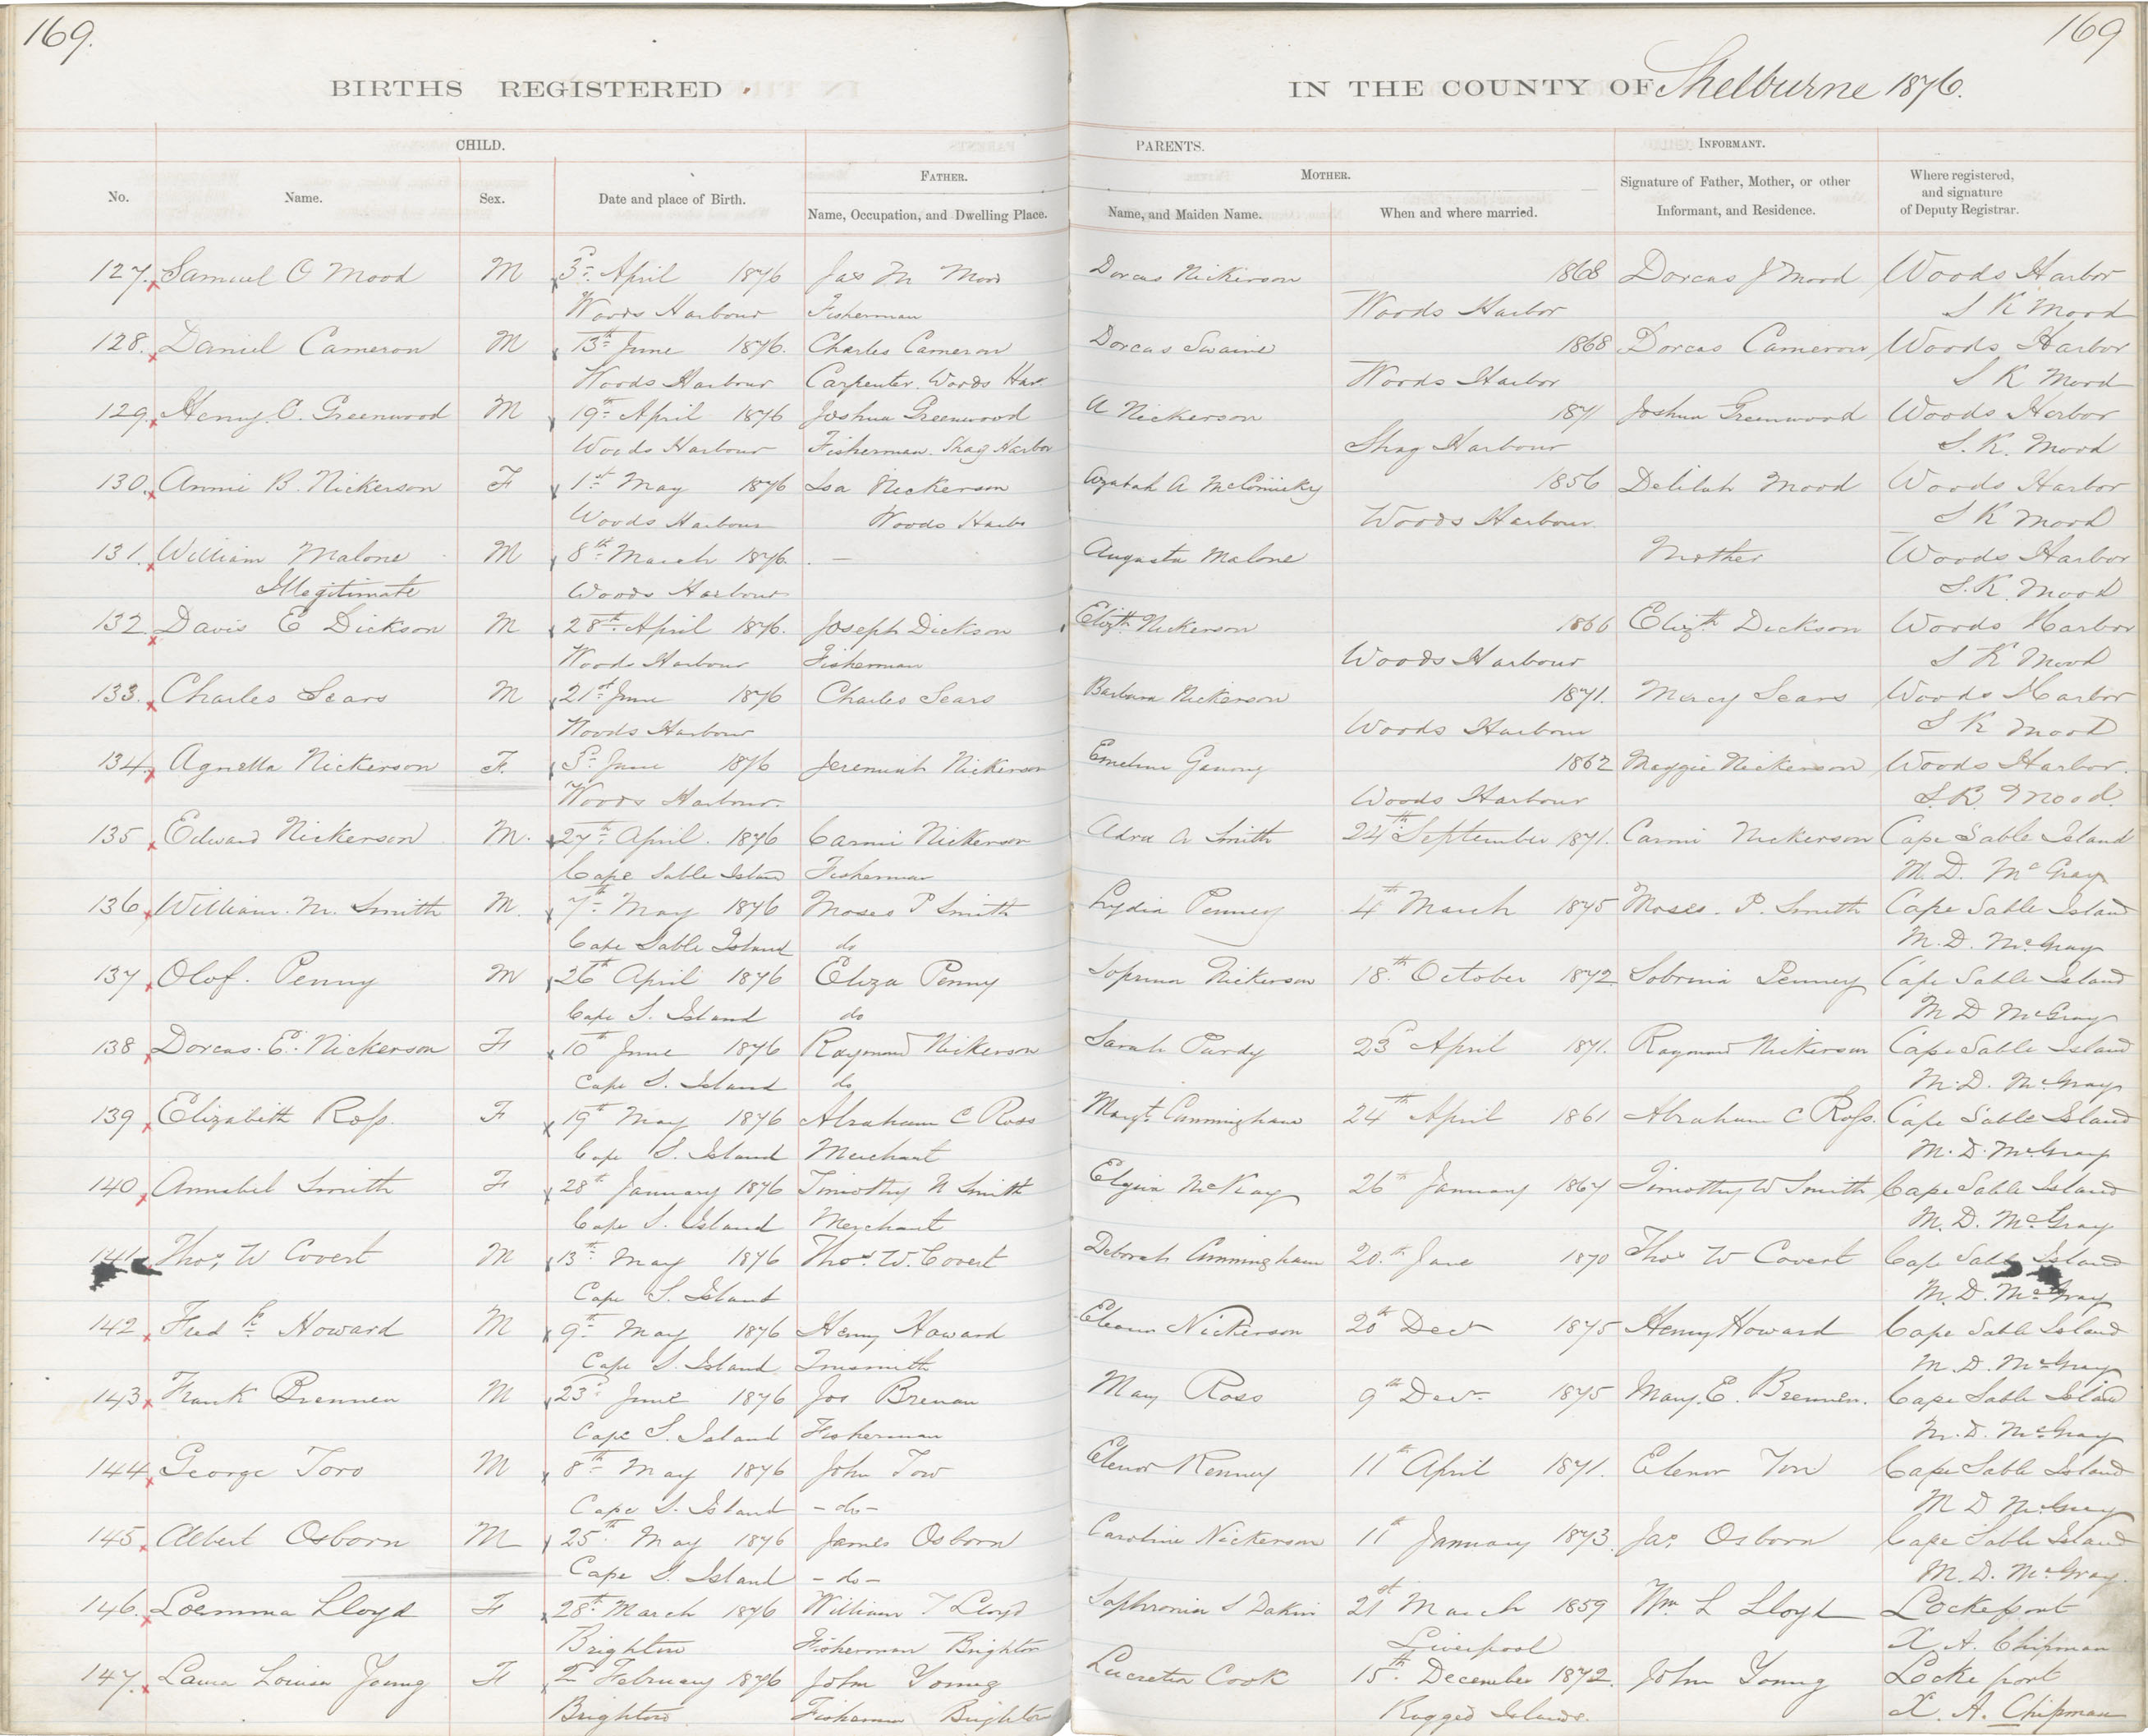 169.
169
BIRTHS REGISTERED
IN THE COUNTY OF Shelburne 1876.
CHILD.
PARENTS.
INFORMANT.
No.
Name.
Sex.
Date and place of Birth.
FATHER.
Name, Occupation, and Dwelling Place.
MOTHER.
Name, and Maiden Name.
When and where married.
Signature of Father, Mother, or other
Informant, and Residence.
Where registered,
and signature
of Deputy Registrar.
127. Samuel O Mood M 3d April 1876 Jas M Mood Dorcas Nickerson 1868 Dorcas J Mood Woods Harbor
Woods Harbour Fisherman Woods Harbor S K Mood
128. Daniel Cameron M 13th June 1876. Charles Cameron Dorcas Swaine 1868 Dorcas Cameron Woods Harbor
Woods Harbour Carpenter. Woods Har. Woods Harbor S K Mood
129. Henry. O. Greenwood M 19th April 1876 Joshua Greenwood A Nickerson 1871 Joshua Greenwood Woods Harbor
Woods Harbour Fisherman. Shag Harbor Shag Harbour S. K. Mood
130. Annie B. Nickerson F 1st May 1876 Isa Nickerson A McComisky 1856 Delilah Mood Woods Harbor
Woods Harbour Woods Harbo Woods Harbour. S K Mood
131. William Malone M 8th March 1876. — Augusta Malone Mother Woods Harbor
Illegitimate Woods Harbour S. K. Mood
132. Davis E Dickson M 28th April 1876. Joseph Dickson Elizth Nickerson 1866 Elizth Dickson Woods Harbor
Woods Harbour Fisherman Woods Harbour S K Mood
133. Charles Sears M 21st June 1876 Charles Sears Barbara Nickerson 1871. Mercy Sears Woods Harbor
Woods Harbour Woods Harbour S K Mood
134. Agnetta Nickerson F. 3d June 1876 Jeremiah Nickerson Emeline Ganong 1862 Maggie Nickerson Woods Harbor.
Woods Harbour. Woods Harbour S. K. Mood.
135 Edward Nickerson M. 27th April. 1876 Carmi Nickerson Adra A Smith 24th September 1871. Carmi Nickerson Cape Sable Island
Cape Sable Island Fisherman M. D. McGray
136 William. M. Smith M. 7th May 1876 Moses P Smith Lydia Penney 4th March 1875 Moses. P. Smith Cape Sable Island
Cape Sable Island do M. D. McGray
137 Olof. Penny M 26th April 1876 Eliza Penny Soprina Nickerson 18th October 1872 Sobrina Penney Cape Sable Island
Cape S. Island do M D McGray
138 Dorcas. E. Nickerson F 10th June 1876 Raymond Nickerson Sarah Purdy 23d April 1871. Raymond Nickerson Cape Sable Island
Cape S. Island do M. D. McGray
139 Elizabeth Ross. F 19th May 1876 Abraham C Ross Margt. Cunningham 24th April 1861 Abraham C Ross. Cape Sable Island
Cape S. Island Merchant M. D. McGray
140 Annabel Smith F 28th January 1876 Timothy W Smith McKay 26th January 1867 Timothy W Smith Cape Sable Island
Cape S. Island Merchant M. D. McGray
141 Thos. W Covert M 13th May 1876 Thos. W. Covert Deborah Cunningham 20th June 1870 Thos W Covert Cape Sable Island
Cape S. Island M. D. McGray
142 Fredk Howard M 9th May 1876 Henry Howard Nickerson 20th Decr 1875 Henry Howard Cape Sable Island
Cape S. Island Tinsmith M. D. McGray
143 Frank Brennen M 23d June 1876 Jos Brenan Mary Ross 9th Decr 1875 Mary. E. Brennen. Cape Sable Island
Cape S. Island Fisherman M. D. McGray
144 George Toro M 8th May 1876 John Tow Elenor Kenney 11th April 1871. Elenor Cape Sable Island
Cape S. Island -do- M D McGray
145 Albert Osborn M 25th May 1876 James Osborn Caroline Nickerson 11th January 1873. Jas. Osborn Cape Sable Island
Cape S. Island -do- M. D. McGray.
146. Loemma Lloyd F 28th March 1876 William T Lloyd Sophronia S Dakin 21st March 1859 Wm L Lloyd Lockeport
Brighton Fisherman Brighton Liverpool X. A. Chipman
147. Laura Louisa Young F 2d February 1876 John Young Lucretia Cook 15th December 1872. John Young Locke port
Brighton Fisherman Brighton Ragged Islands. X. A. Chipman